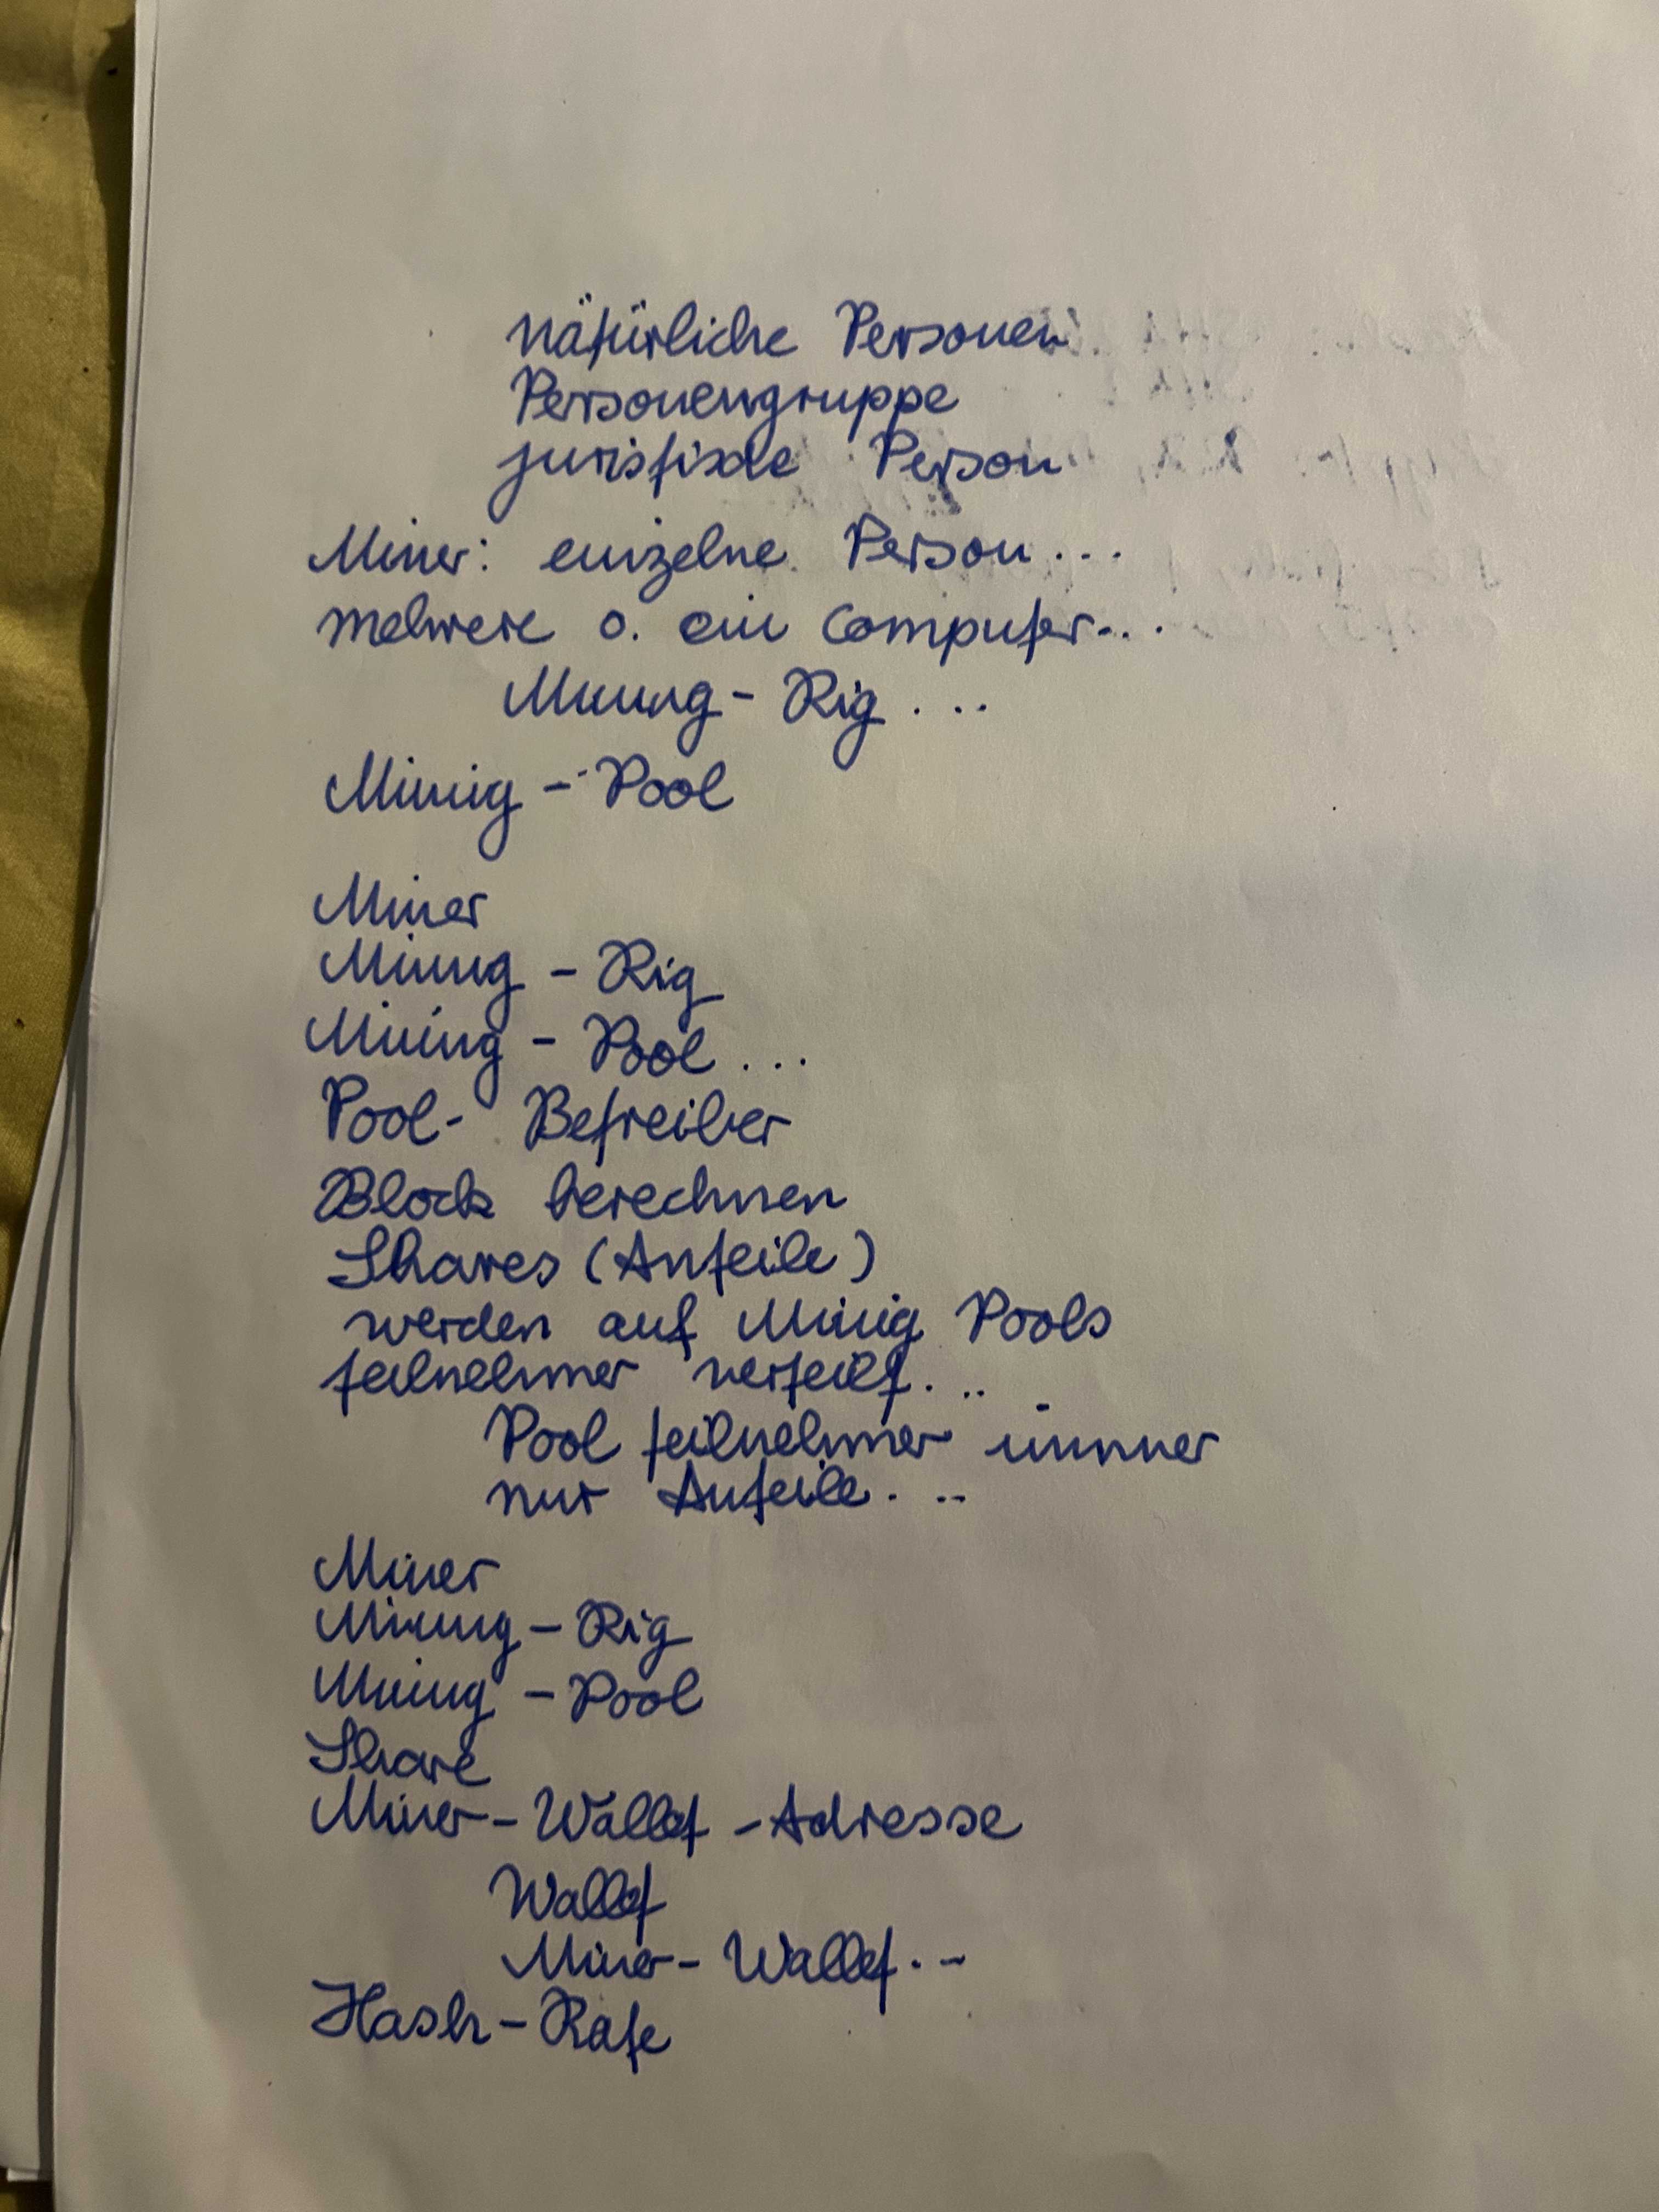 nätürliche Personen
Personengruppe
juristische Person
Miner: einzelne Person...
mehrere o. ein Computer...
Mining - Rig ...
Mining - Pool
Miner
Mining - Rig
Mining - Pool ...
Pool - Betreiber
Block berechnen
Shares (Anteile)
werden auf Minig Pools
teilnehmer verteilt...
Pool teilnehmer immer
nur Anteile...
Miner
Mining - Rig
Mining - Pool
Share
Miner - Wallet - Adresse
Wallet
Miner - Wallet..
Hash - Rate